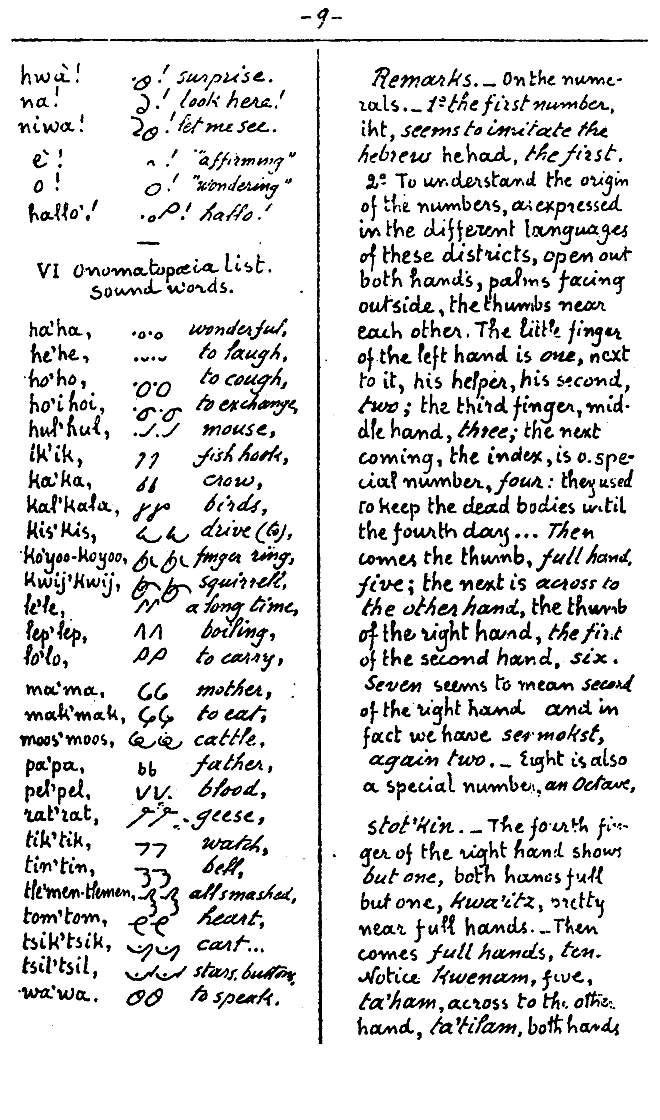 -9-
hwà! ! surprise.
na! ! look here!
niwa! ! let me see.
è! ! "affirming"
o! ! "wondering"
hallo'! ! hallo!
VI Onomatopœia list.
Sound words.
ha'ha, wonderful,
he'he, to laugh,
ho'ho, to cough,
ho'i hoi, to exchange,
hul'hul, mouse,
ik'ik, fish hook,
ka'ka, crow,
kal'kala, birds,
kis'kis, drive (to),
ko'yoo-koyoo, finger ring,
kwij'kwij, squirrell,
le'le, a long time,
lep'lep, boiling,
lo'lo, to carry,
ma'ma, mother,
mak'mak, to eat,
moos'moos, cattle,
pa'pa, father,
pel'pel, blood,
rat'rat, geese,
tik'tik, watch,
tin'tin, bell,
tle'men-tlemen, all smashed,
tom'tom, heart,
tsik'tsik, cart...
tsil'tsil, stars, buttons,
wa'wa. to speak.
Remarks._ On the nume-
rals._ 1º the first number,
iht, seems to imitate the
hebrew hehad, the first.
2º To understand the origin
of the numbers, as expressed
in the different languages
of these districts, open out
both hands, palms facing
outside, the thumbs near
each other. The little finger
of the left hand is one, next
to it, his helper, his second,
two; the third finger, mid-
dle hand, three; the next
coming, the index, is a spe-
cial number, four: they used
to keep the dead bodies until
the fourth day... Then
comes the thumb, full hand,
five; the next is across to
the other hand, the thumb
of the right hand, the first
of the second hand, six.
Seven seems to mean second
of the right hand and in
fact we have sermokst,
again two._ Eight is also
a special number, an Octave,
stot'kin._ The fourth fin-
ger of the right hand shows
but one, both hands full
but one, kwa'itz, pretty
near full hands._ Then
comes full hands, ten.
Notice kwenam, five,
ta'ham, across to the other
hand, ta'tilam, both hands